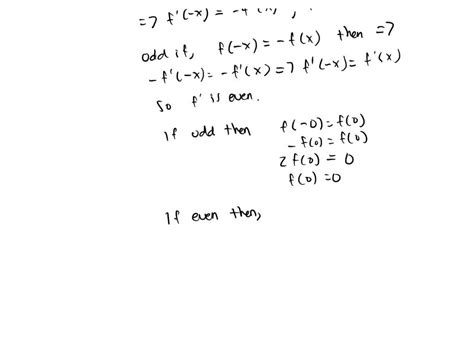 =7 f'(-x) = -f'(x) ,
odd if, f(-x) = -f(x) then =7
-f'(-x) = -f'(x) =7 f'(-x) = f'(x)
So f' is even.
If odd then f(-0) = f(0)
-f(0) = f(0)
2f(0) = 0
f(0) = 0
If even then,